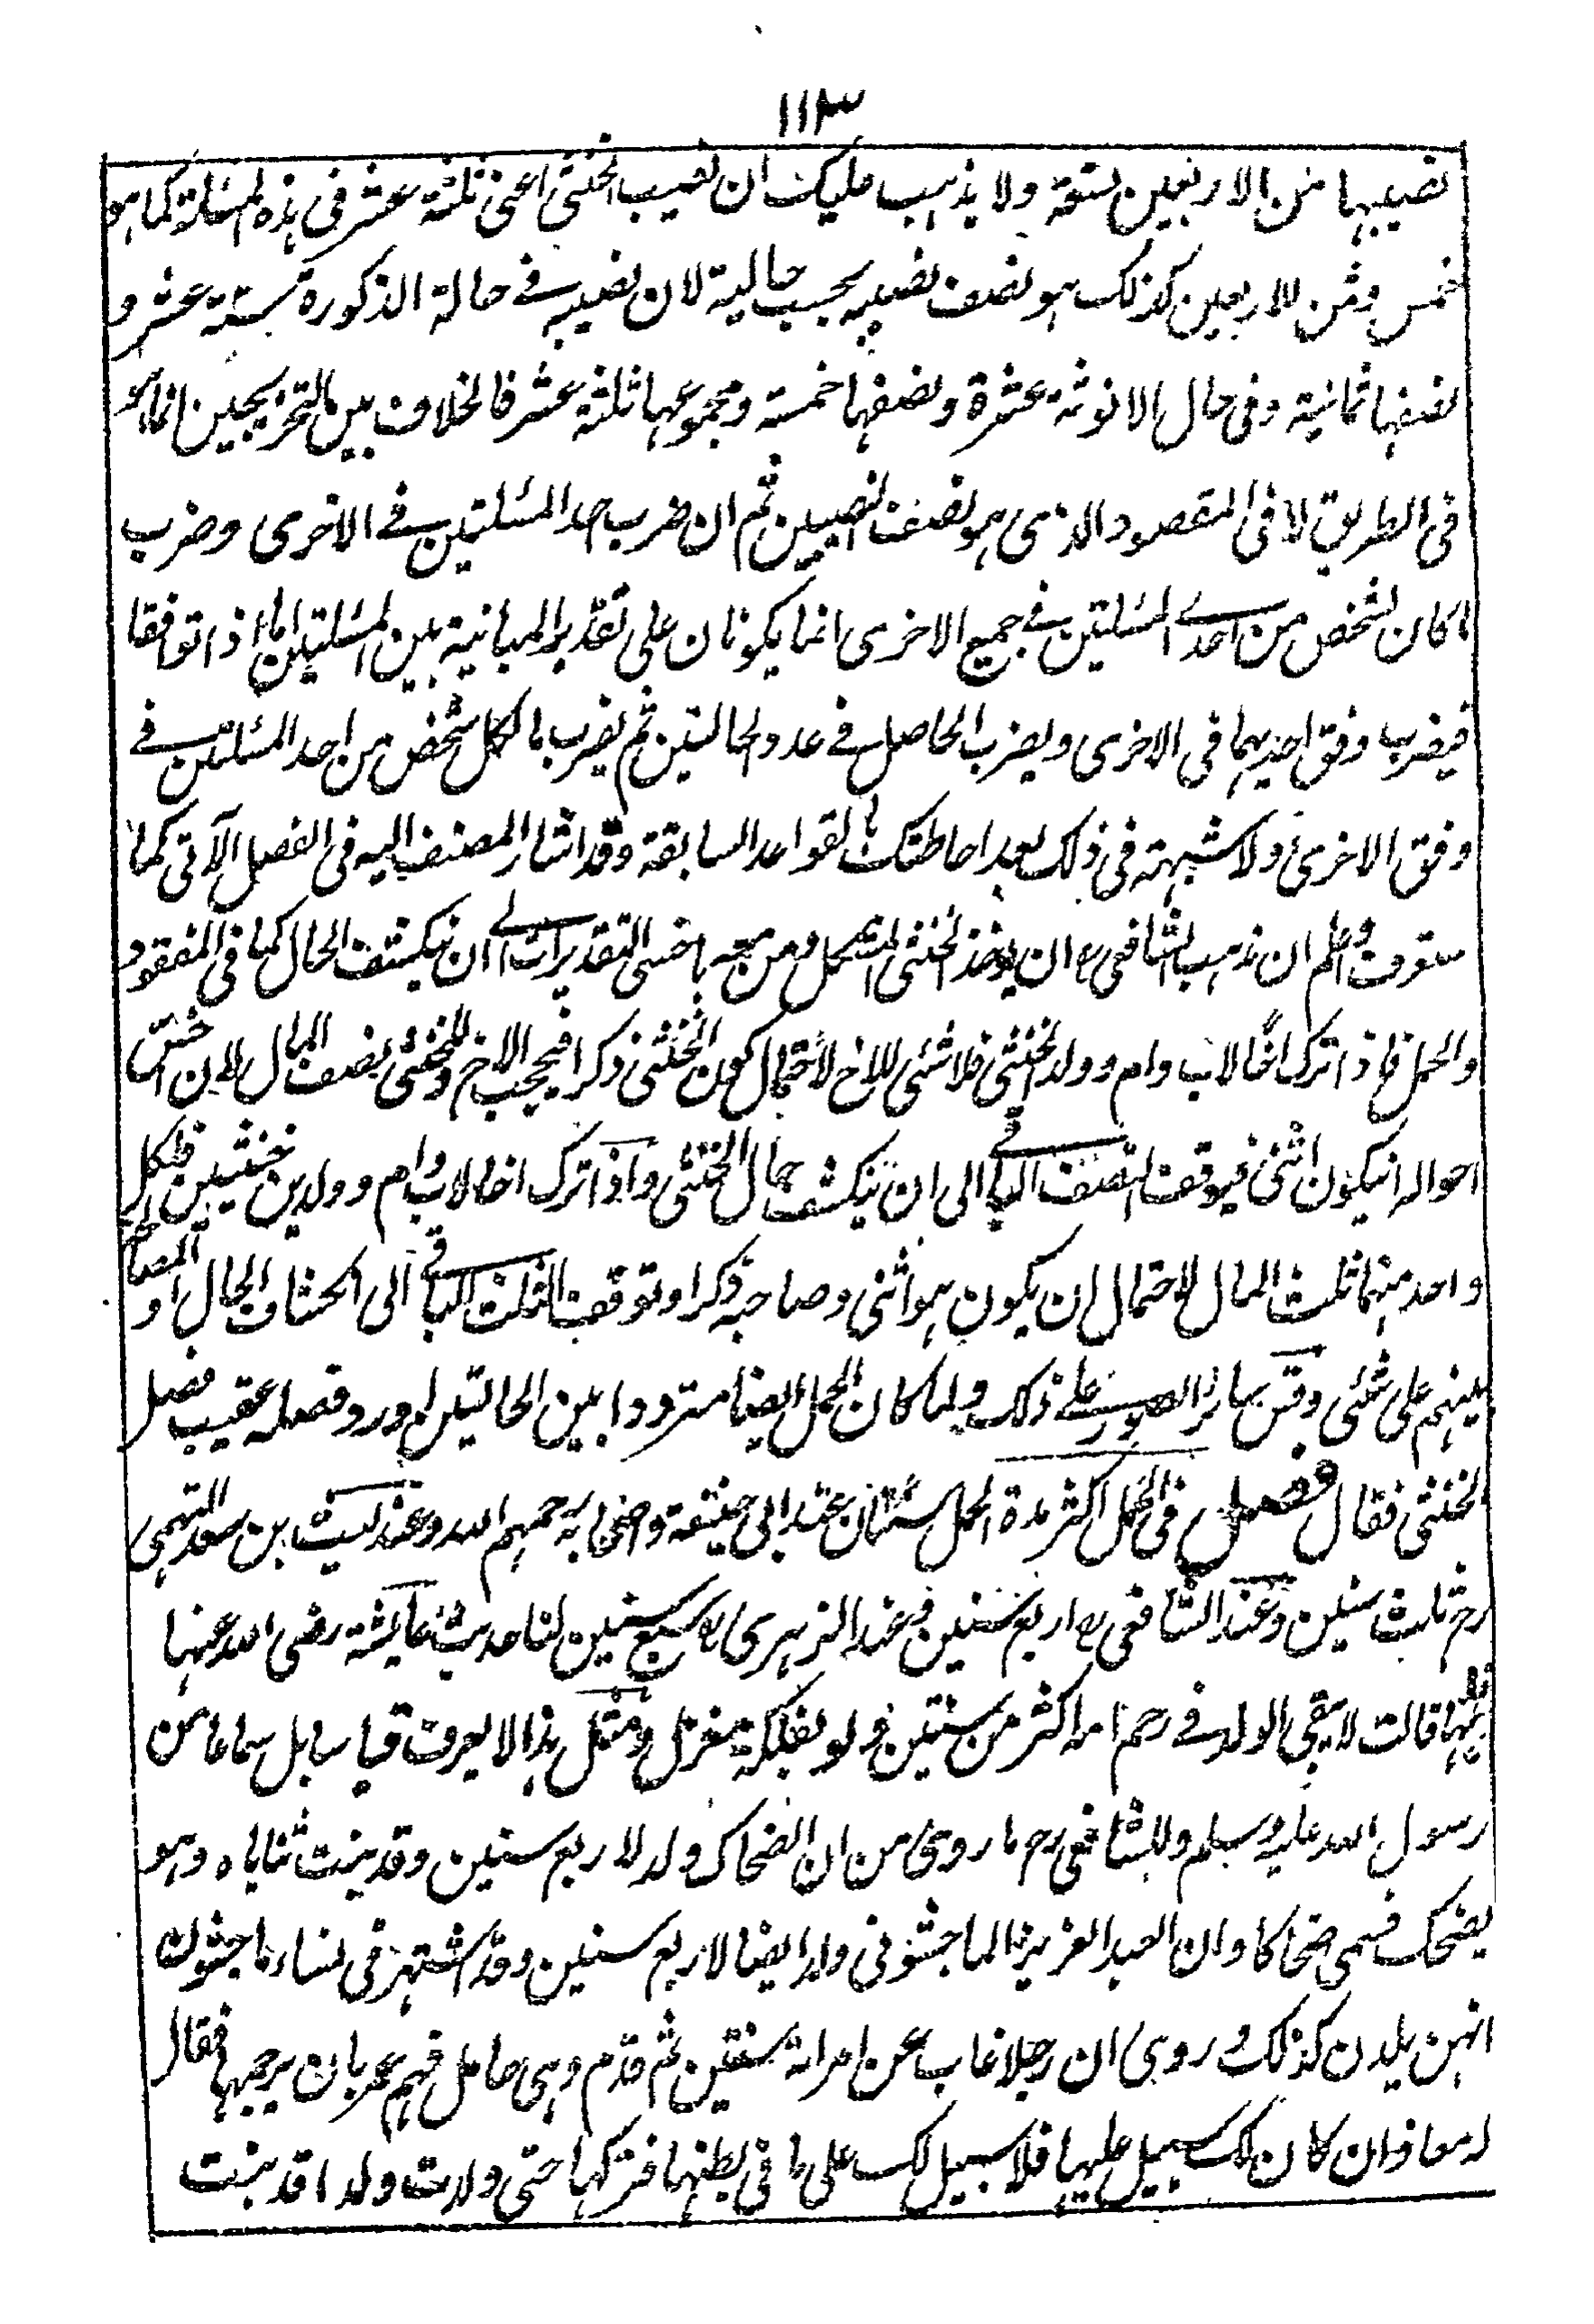 ١١٣
نصيبها من الاربعين تسعة ولا يذهب عليك ان نصيب الخنثى اعنى ثلثة عشر فى هذه المسئلة كما هو
خمس وثمن للاربعين كذلك هو نصف نصيبيه بحسب حاليه لان نصيبه فى حالة الذكورة ستة عشر و
نصفها ثمانية وفى حال الانوثة عشرة ونصفها خمسة ومجموعها ثلثة عشر فالخلاف بين التخريجين انما هو
فى الطريق لا فى المقصود الذى هو نصف النصيبين ثم ان ضرب احد المسئلتين فى الاخرى وضرب
ما كان لشخص من احدى المسئلتين فى جميع الاخرى انما يكونان على تقدير المباينة بين المسئلتين اما اذا توافقا
فيضرب وفق احديهما فى الاخرى ويضرب الحاصل فى عدد الحالتين ثم يضرب ما لكل شخص من احد المسئلتين فى
وفق الاخرى ولا شبهة فى ذلك بعد احاطتك بالقواعد السابقة وقد اشار المصنف اليه فى الفصل الآتى كما
ستعرف واعلم ان مذهب الشافعى رح ان يوخذ الخنثى المشكل ومن معه باخس التقديرات الى ان ينكشف الحال كما فى المفقود
والحمل فاذا ترك اخا لاب وام وولد خنثى فلا شئى للاخ لاحتمال كون الخنثى ذكرا فيحجب الاخ وللخنثى نصف المال لان اخس
احواله ان يكون انثى فيوقف النصف الباقى الى ان ينكشف حال الخنثى واذا ترك اخا لاب وام وولدين خنثيين فلكل
واحد منهما ثلث المال لاحتمال ان يكون هو انثى وصاحبه ذكرا وتوقف الثلث الباقى الى انكشاف الحال او المصالحة
بينهم على شئى وقس سائر الصور على ذلك ولما كان الحمل ايضا مترددا بين الحالتين اورد فصله عقيب فصل
الخنثى فقال فصل فى الحمل اكثر مدة الحمل سنتان عند ابى حنيفة واصحابه رحمهم الله وعند ليث بن سعد الفهمى
رح ثلث سنين وعند الشافعى رح اربع سنين وعند الزهرى رح سبع سنين لنا حديث عايشة رضى الله عنها
فانها قالت لا يبقى الولد فى رحم امه اكثر من سنتين ولو بفلكة مغزل ومثل هذا لا يعرف قياسا بل سماعا من
رسول الله عليه وسلم وللشافعى رح ما روى من ان الضحاك ولد لاربع سنين وقد نبت ثناياه وهو
يضحك فسمى ضحاكا وان العبد العزيز الماجشونى ولد ايضا لاربع سنين وقد اشتهر فى نساء ماجشون
انهن يلدن كذلك وروى ان رجلا غاب عن امرأته سنتين ثم قدم وهى حامل فهم عمر بان يرجمها فقال
له معاذ ان كان لك سبيل عليها فلا سبيل لك على ما فى بطنها فتركها حتى ولدت ولدا قد نبتت